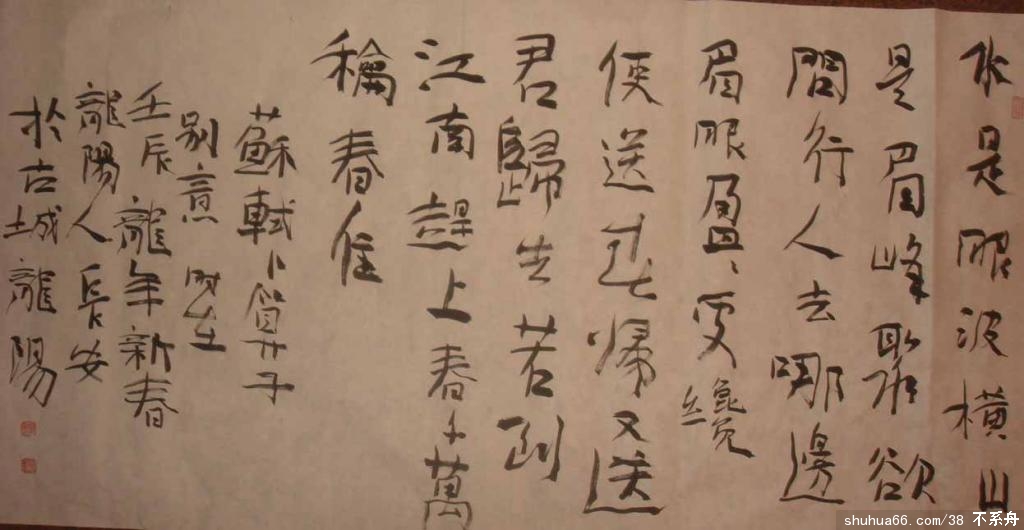 水是眼波橫山
是眉峰聚欲
問行人去哪邊
眉眼盈、处纔
使送春帰又送
君歸去若到
江南趕上春千萬
春住
蘇軾卜算子
别意 时在
壬辰龍年新春
龍陽人長安
於古城龍陽
shuhua66.com/38 不系舟